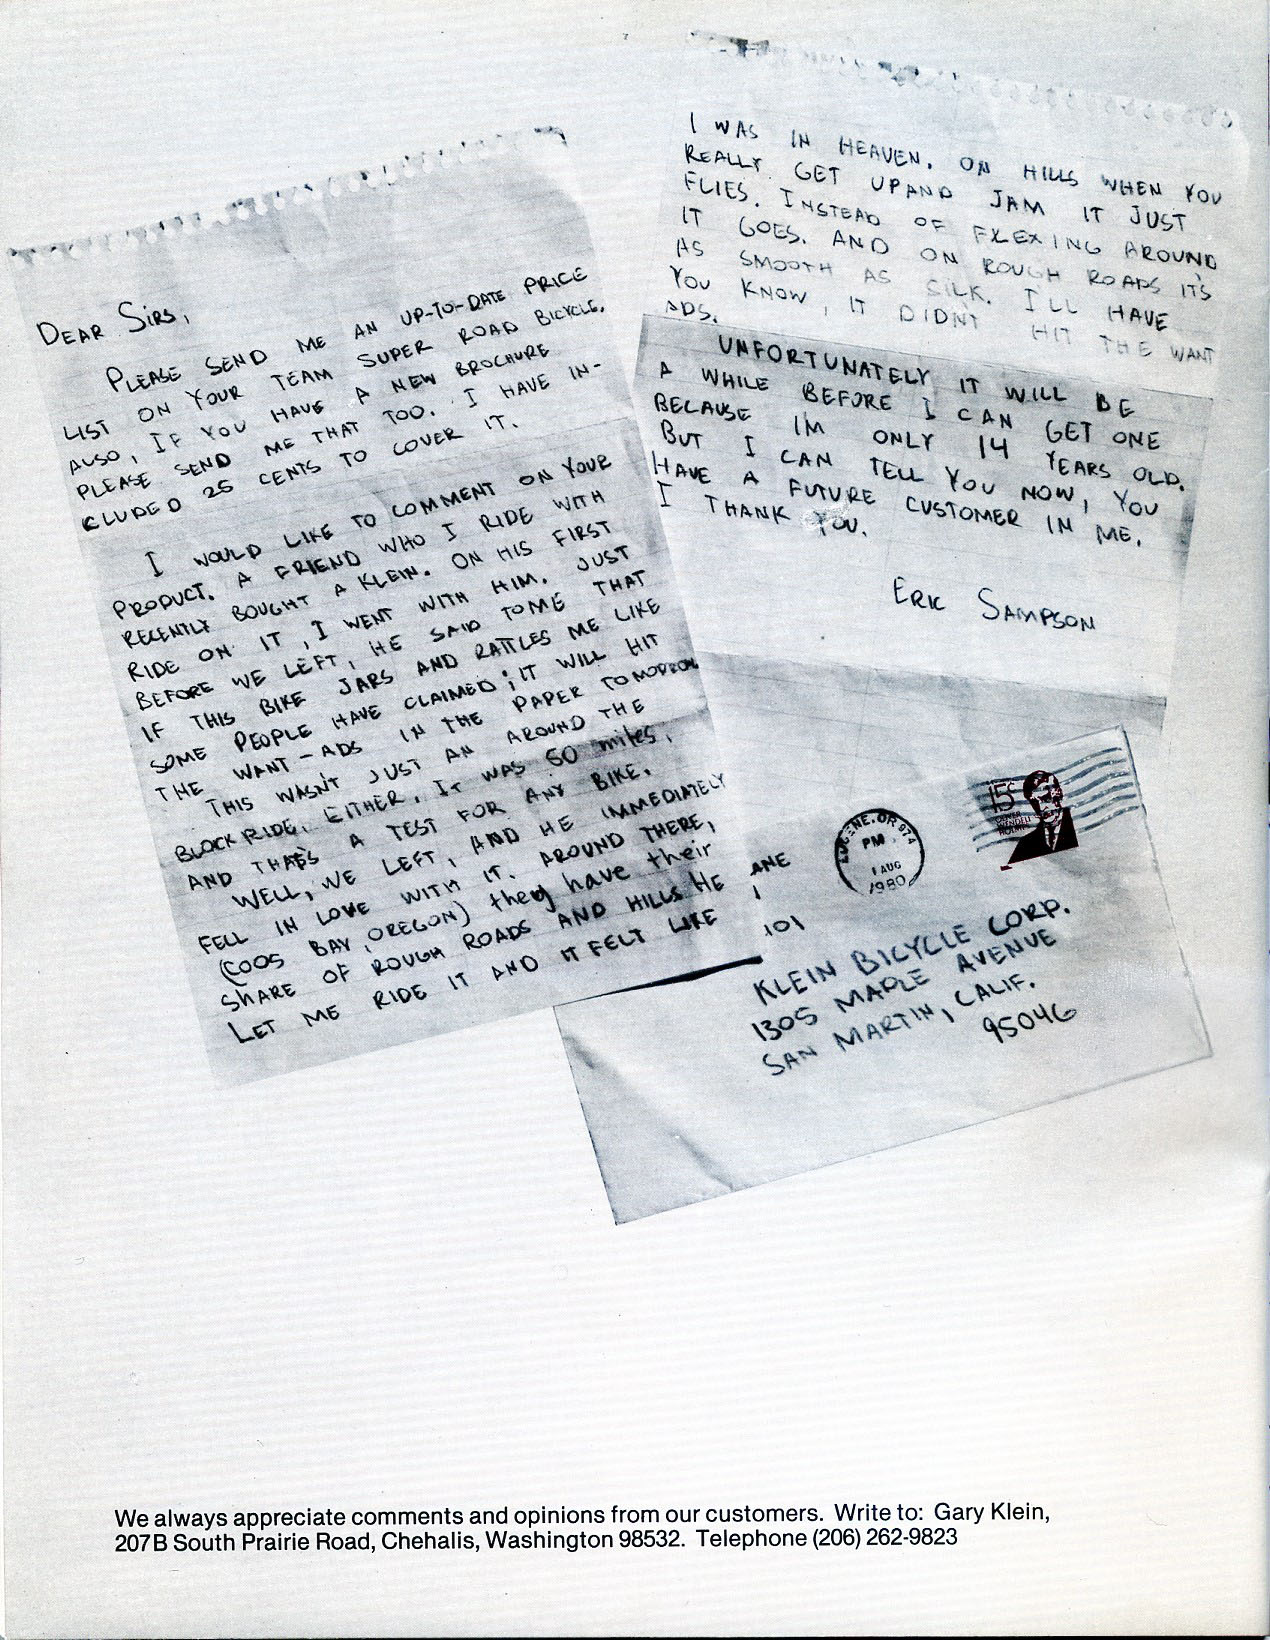 DEAR SIRS,
PLEASE SEND ME AN UP-TO-DATE PRICE
LIST ON YOUR TEAM SUPER ROAD BICYCLE.
ALSO, IF YOU HAVE A NEW BROCHURE
PLEASE SEND ME THAT TOO. I HAVE IN-
CLUDED 25 CENTS TO COVER IT.
I WOULD LIKE TO COMMENT ON YOUR
PRODUCT. A FRIEND WHO I RIDE WITH
RECENTLY BOUGHT A KLEIN. ON HIS FIRST
RIDE ON IT, I WENT WITH HIM. JUST
BEFORE WE LEFT, HE SAID TO ME THAT
IF THIS BIKE JARS AND RATTLES ME LIKE
SOME PEOPLE HAVE CLAIMED; IT WILL HIT
THE WANT-ADS IN THE PAPER TOMORROW
THIS WASN'T JUST AN AROUND THE
BLOCK RIDE, EITHER. IT WAS 60 miles,
AND THAT'S A TEST FOR ANY BIKE.
WELL, WE LEFT, AND HE IMMEDIATELY
FELL IN LOVE WITH IT. AROUND THERE,
(COOS BAY, OREGON) they have their
SHARE OF ROUGH ROADS AND HILLS HE
LET ME RIDE IT AND IT FELT LIKE
I WAS IN HEAVEN. ON HILLS WHEN YOU
REALLY GET UP AND JAM IT JUST
FLIES. INSTEAD OF FLEXING AROUND
IT GOES. AND ON ROUGH ROADS IT'S
AS SMOOTH AS SILK. I'LL HAVE
YOU KNOW, IT DIDN'T HIT THE WANT
ADS.
UNFORTUNATELY IT WILL BE
A WHILE BEFORE I CAN GET ONE
BECAUSE IM ONLY 14 YEARS OLD.
BUT I CAN TELL YOU NOW, YOU
HAVE A FUTURE CUSTOMER IN ME.
I THANK YOU.
ERIC SAMPSON
ANE
101
EUGENE, OR 974
PM
1 AUG
1980
15c
OLIVER
WENDELL
HOLMES
KLEIN BICYCLE CORP.
1305 MAPLE AVENUE
SAN MARTIN, CALIF.
95046
We always appreciate comments and opinions from our customers. Write to: Gary Klein,
207B South Prairie Road, Chehalis, Washington 98532. Telephone (206) 262-9823